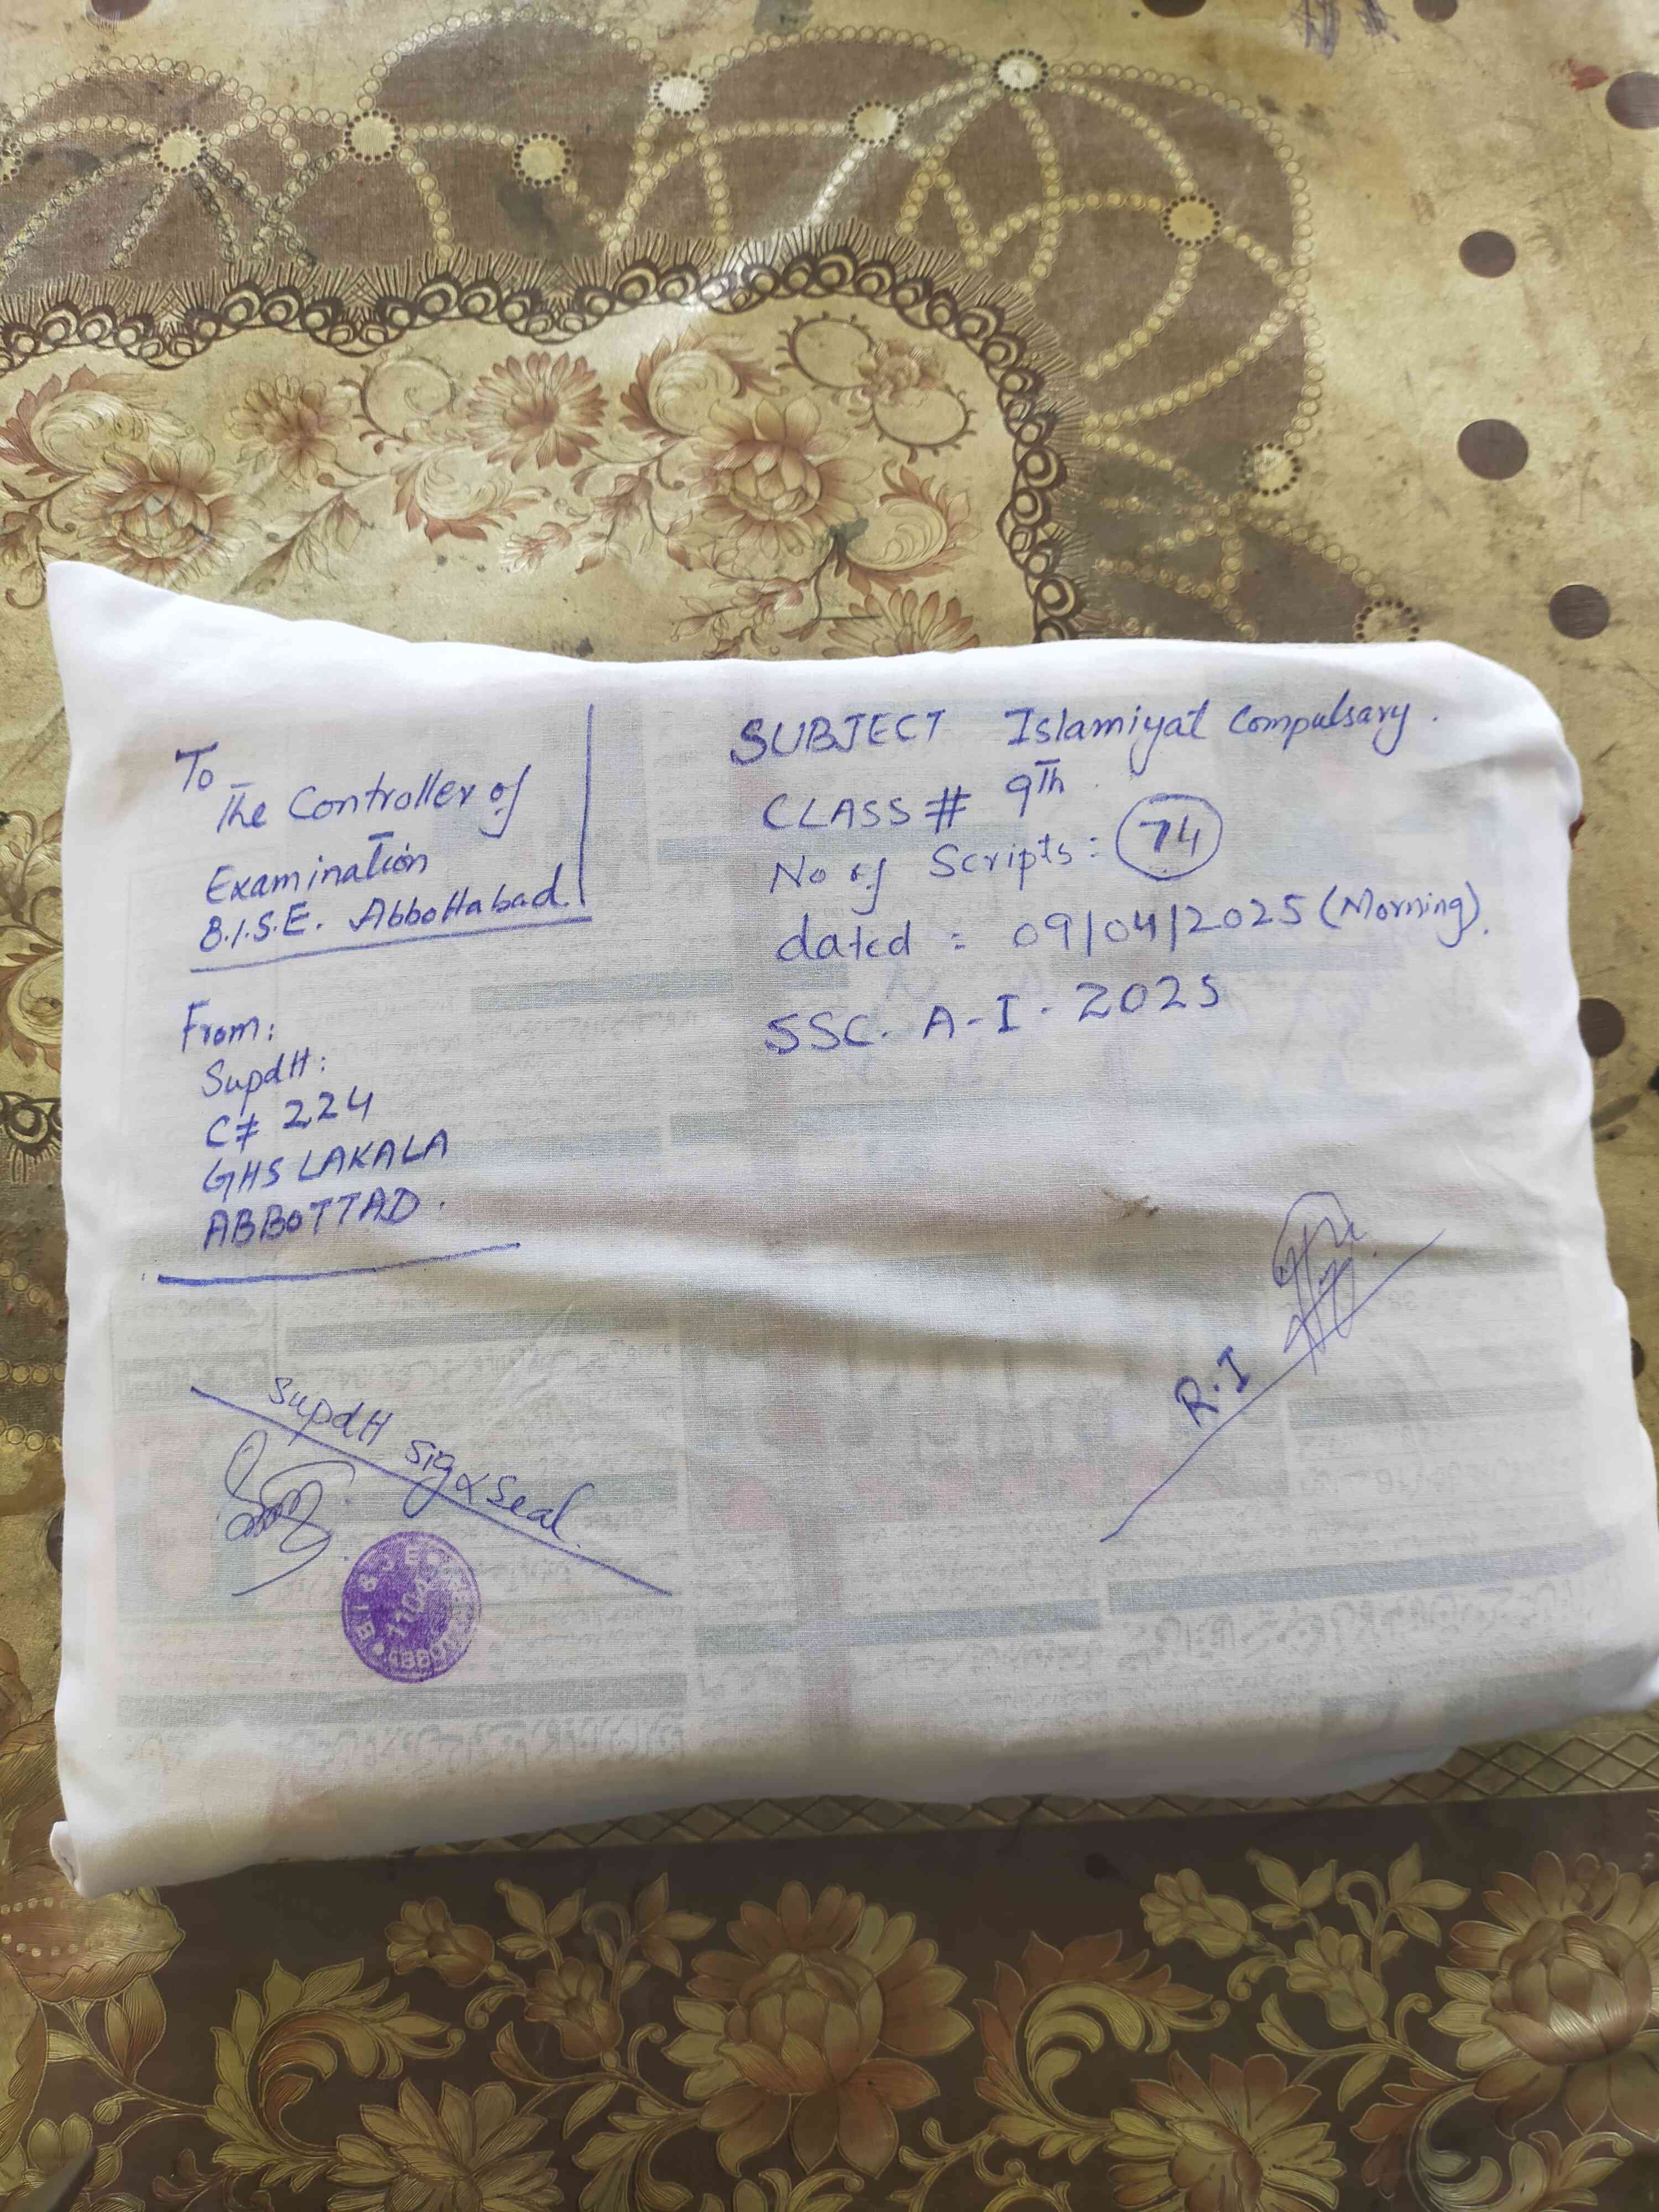 To
The Controller of
Examination
B.I.S.E. Abbottabad.
SUBJECT Islamiyat Compulsary.
CLASS # 9Th
No of Scripts: 74
dated = 09/04/2025 (Morning).
SSC. A-I. 2025
From:
Supdtt:
C# 224
GHS LAKALA
ABBOTTAD.
Supdtt Sig & Seal
R.I